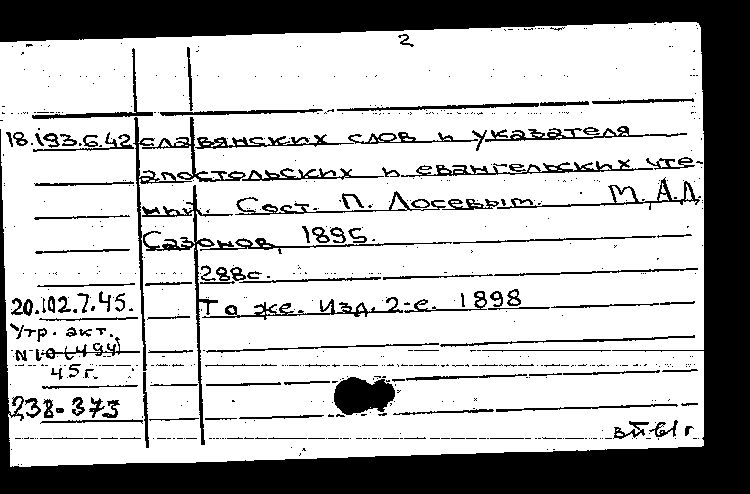 2
18.193.6.42 славянских слов и указателя
апостольских и евангельских чте-
ний. Сост. П. Лосевым. М., А.Д.
Сазонов, 1895.
288с.
20.102.7.45. То же. Изд. 2-е. 1898
Утр. акт.
N 10 (494)
45г.
238-373